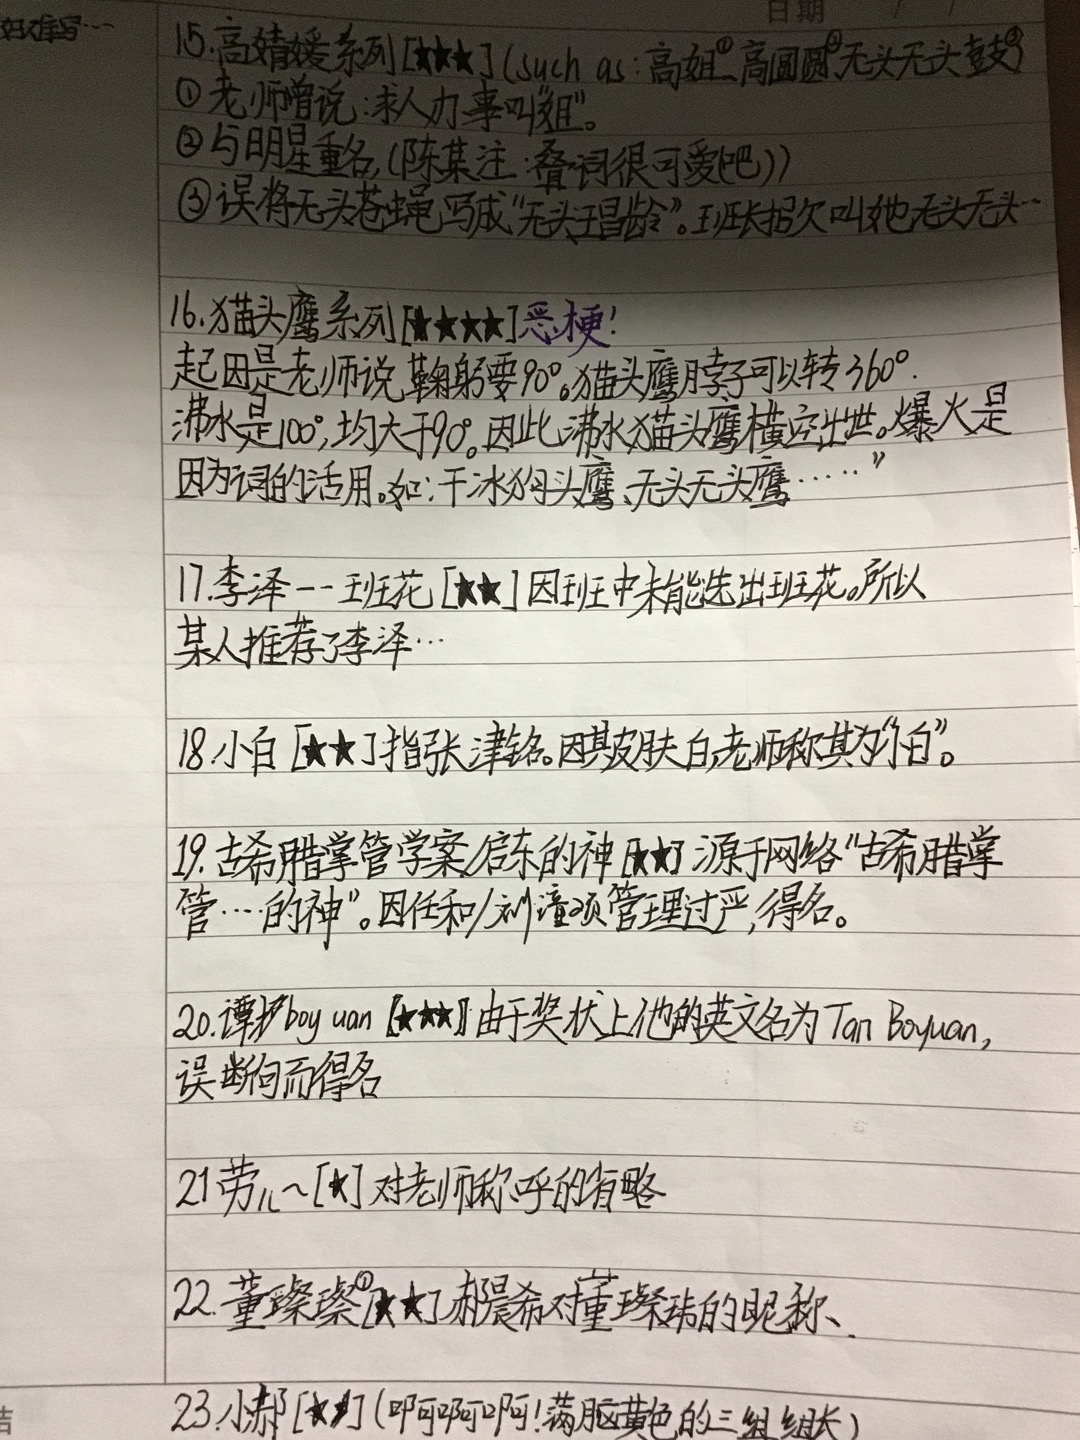 日期
15.高婧媛系列[★★★](such as:高姐①、高圆圆②、无头无头鼓③)
①老师曾说:求人办事叫"姐"。
②与明星重名,(陈某注:叠词很可爱吧))
③误将无头苍蝇写成"无头王昌龄"。班长据欠叫她无头无头…
16.猫头鹰系列[★★★★]恶梗!
起因是老师说鞠躬要90°。猫头鹰脖子可以转360°.
沸水是100°,均大于90°。因此,沸水猫头鹰横空出世。爆火是
因为词的活用。如:干冰狗头鹰、无头无头鹰……"
17.李泽--班花[★★]因班中未能选出班花。所以
某人推荐了李泽…
18.小白[★★]指张津铭。因其皮肤白,老师称其为"小白"。
19.古希腊掌管学案/启东的神[★★]源于网络"古希腊掌
管……的神"。因任和/刘潼项管理过严,得名。
20.谭boy uan[★★★]由于奖状上他的英文名为Tan Boyuan,
误断句而得名
21劳儿~[★]对老师称呼的省略
22.董璨璨①[★★]郝晨希对董璨玮的昵称、.
23.小郝[★★](啊啊啊!满脑黄色的三组组长)